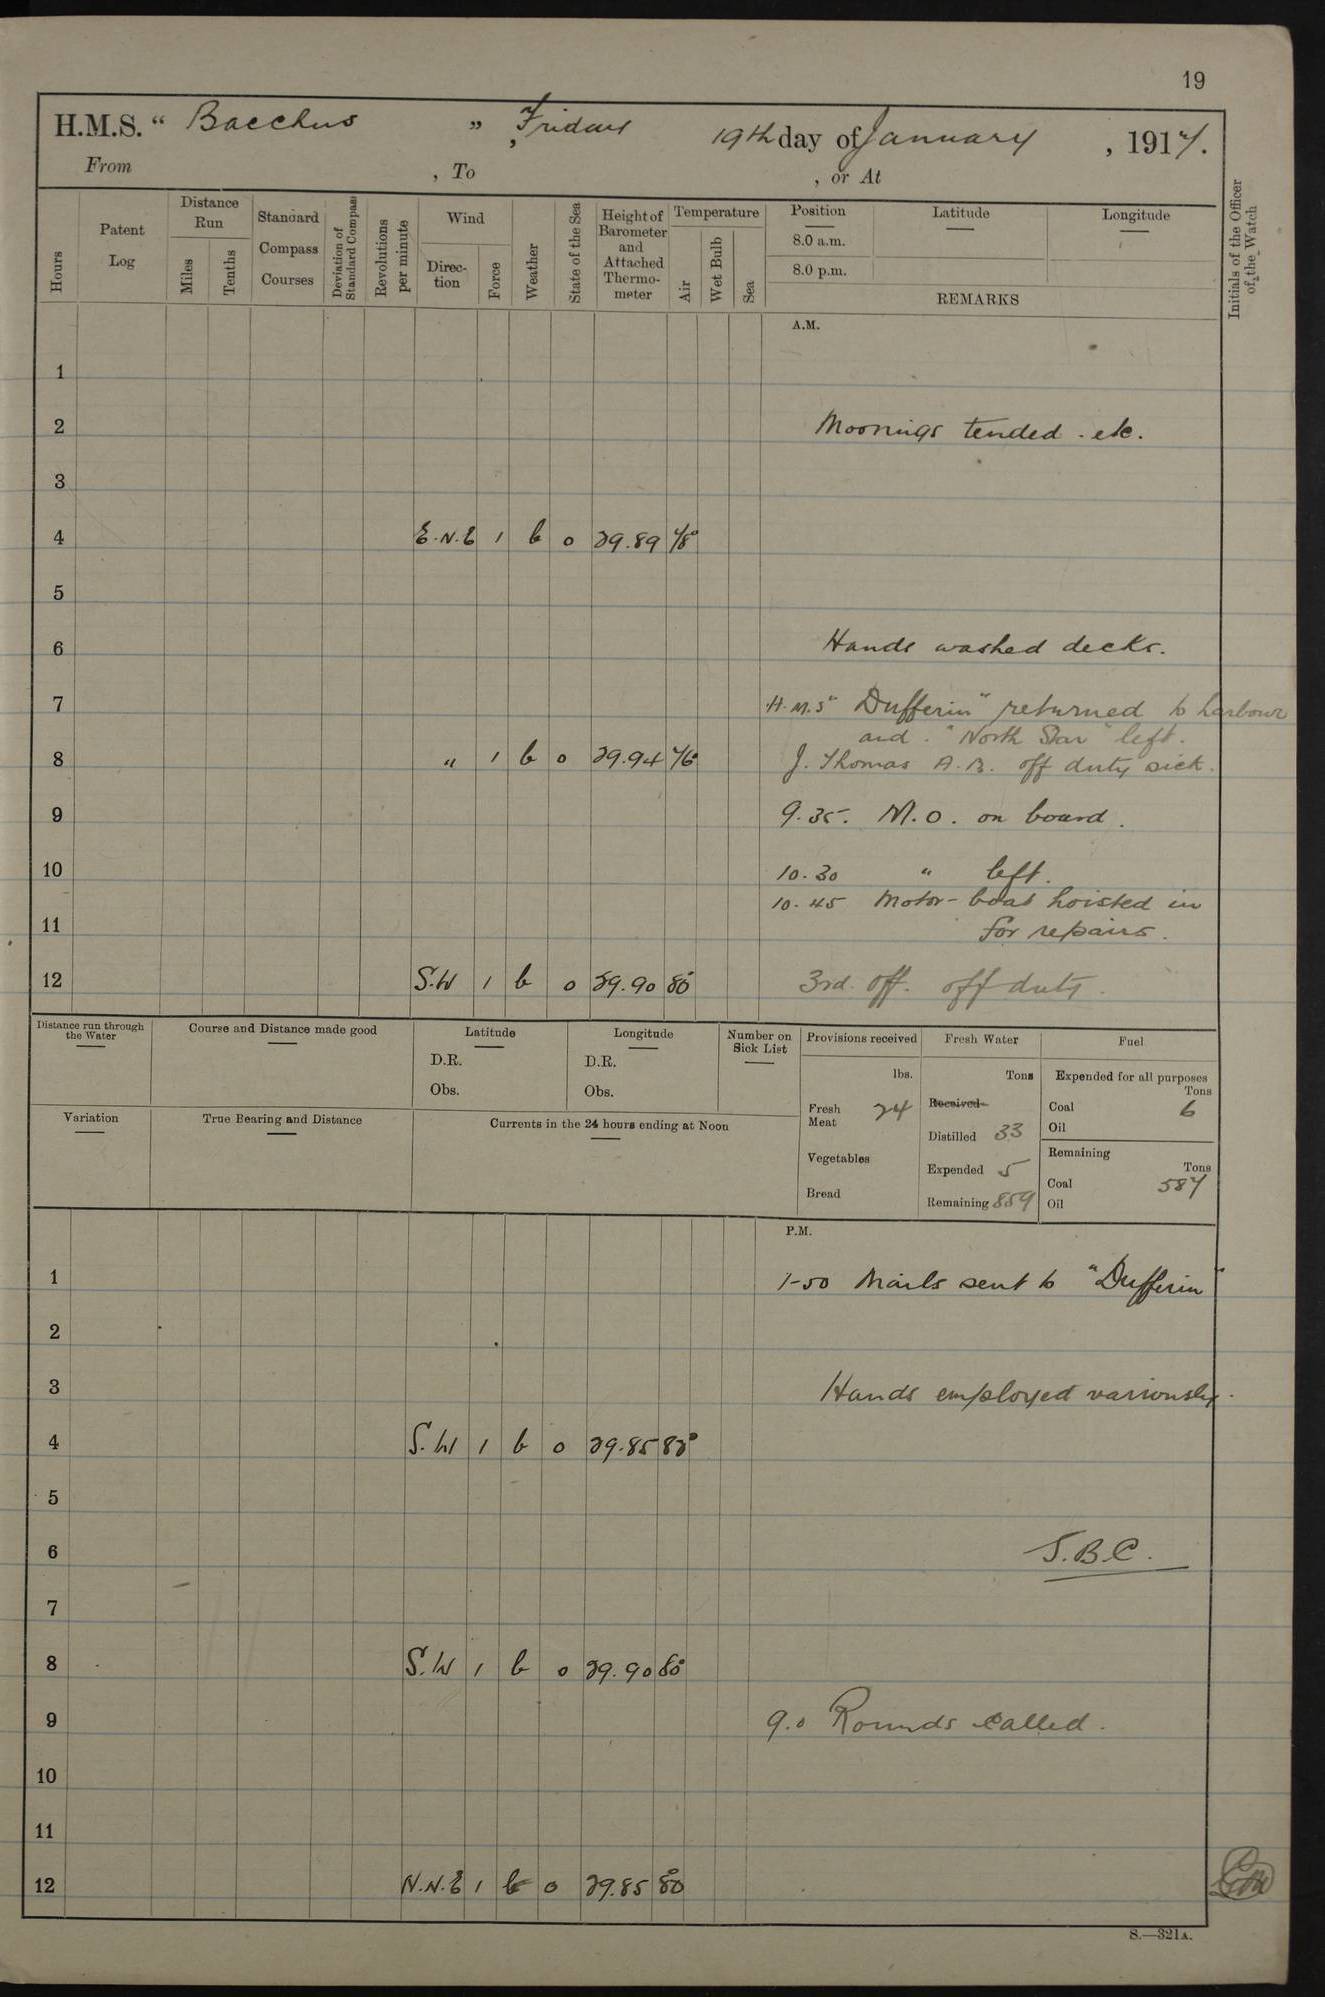 19
H.M.S. “ Bacchus ” , Friday 19th day of January , 1917.
From , To , or At
Hours
Patent Log
Distance Run
Miles
Tenths
Standard Compass Courses
Deviation of Standard Compass
Revolutions per minute
Wind
Direc-tion
Force
Weather
State of the Sea
Height of Barometer and Attached Thermo-meter
Temperature
Air
Wet Bulb
Sea
Position
8.0 a.m.
8.0 p.m.
Latitude
Longitude
REMARKS
Initials of the Officer of the Watch
A.M.
1
2 Moorings tended . etc.
3
4 E.N.E 1 b 0 29.89 78°
5
6 Hands washed decks.
7 H.M.S "Dufferin" returned to harbour
and "North Star" left.
8 " 1 b 0 29.94 76° J. Thomas A.B. off duty sick.
9 9.35. M.O. on board.
10 10.30 " left.
10.45 Motor-boat hoisted in
11 for repairs.
12 S.W 1 b 0 29.90 80° 3rd. off. off duty.
Distance run through the Water
Course and Distance made good
Latitude
D.R.
Obs.
Longitude
D.R.
Obs.
Number on Sick List
Provisions received
lbs.
Fresh Meat 24
Vegetables
Bread
Fresh Water
Tons
Received
Distilled 33
Expended 5
Remaining 859
Fuel
Expended for all purposes
Tons
Coal 6
Oil
Remaining
Tons
Coal 587
Oil
Variation
True Bearing and Distance
Currents in the 24 hours ending at Noon
P.M.
1 1-50 Mails sent to "Dufferin"
2
3 Hands employed variously.
4 S.W 1 b 0 29.85 82°
5
6 J.B.C.
7
8 S.W 1 b 0 29.90 80°
9 9.0 Rounds called.
10
11
12 N.N.E 1 b 0 29.85 80°
S.—321A.